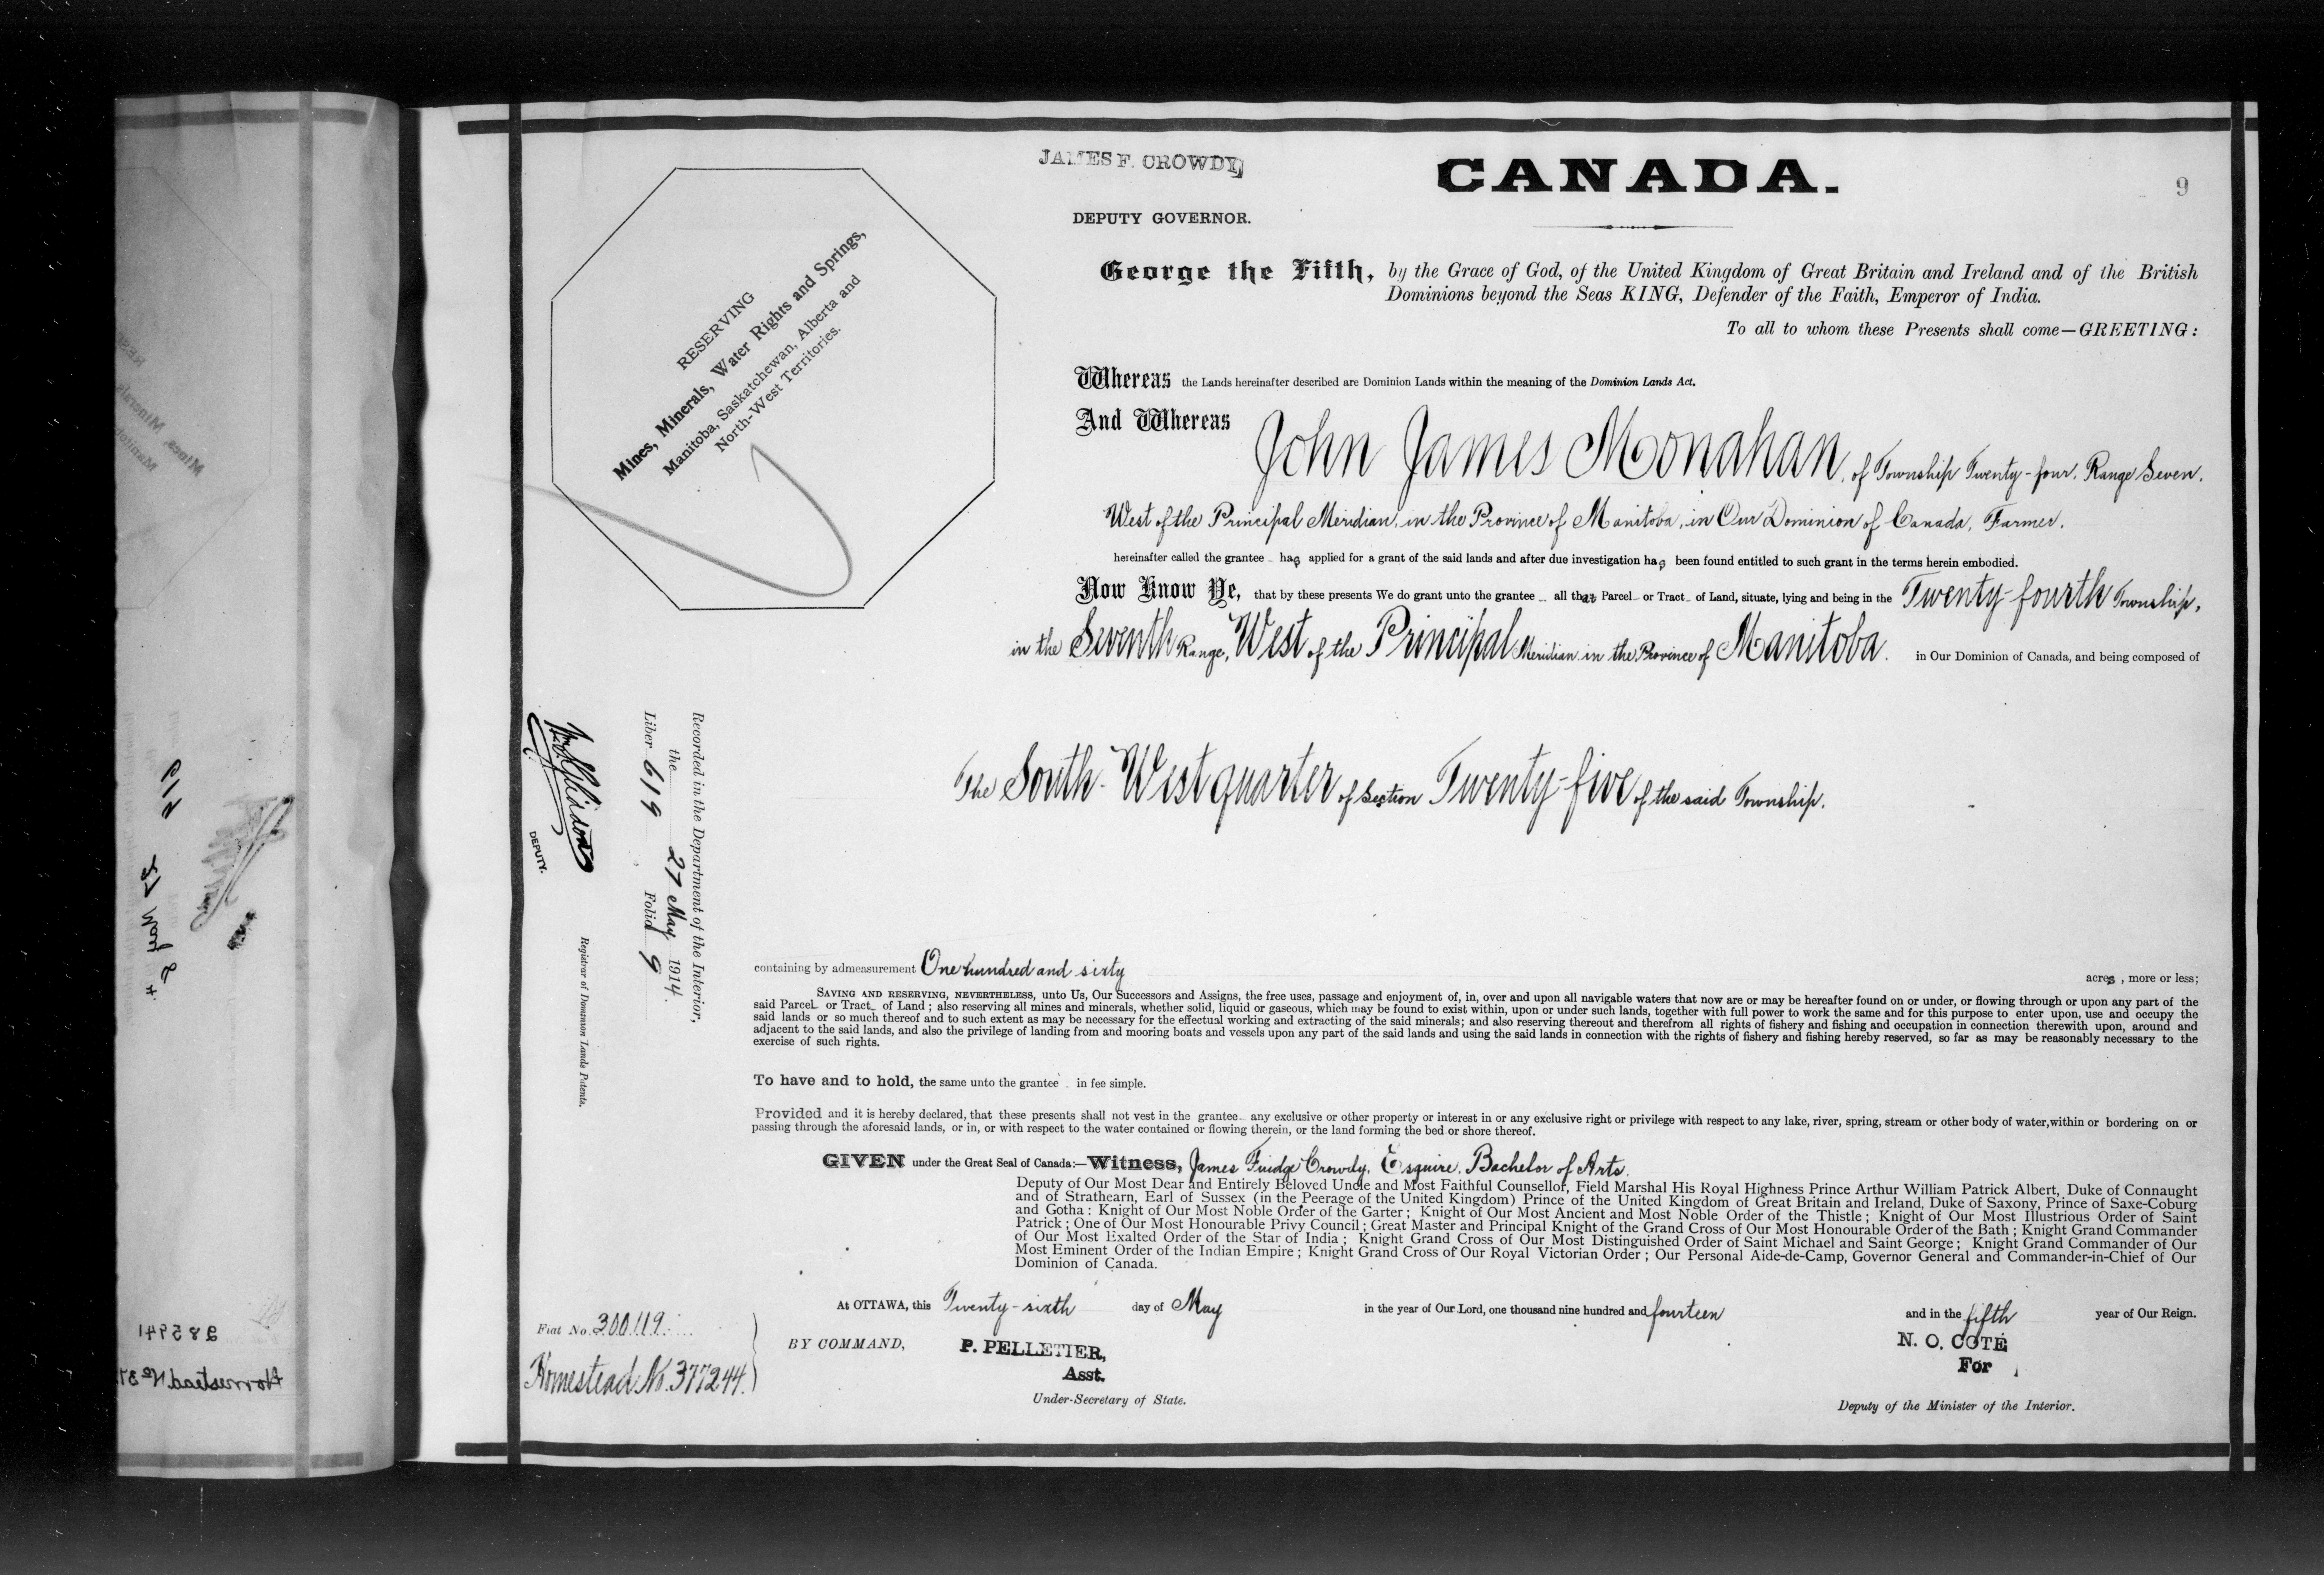 JAMES F. CROWDY,
CANADA.
9
DEPUTY GOVERNOR.
George the Fifth, by the Grace of God, of the United Kingdom of Great Britain and Ireland and of the British
Dominions beyond the Seas KING, Defender of the Faith, Emperor of India.
To all to whom these Presents shall come—GREETING:
RESERVING
Mines, Minerals, Water Rights and Springs,
Manitoba, Saskatchewan, Alberta and
North-West Territories.
Whereas the Lands hereinafter described are Dominion Lands within the meaning of the Dominion Lands Act.
And Whereas John James Monahan, of Township Twenty-four, Range Seven,
West of the Principal Meridian, in the Province of Manitoba, in Our Dominion of Canada, Farmer.
hereinafter called the grantee has applied for a grant of the said lands and after due investigation has been found entitled to such grant in the terms herein embodied.
Now Know Ye, that by these presents We do grant unto the grantee all that Parcel or Tract of Land, situate, lying and being in the Twenty-fourth Township,
in the Seventh Range, West of the Principal Meridian in the Province of Manitoba. in Our Dominion of Canada, and being composed of
The South-West quarter of Section Twenty-five of the said Township.
Recorded in the Department of the Interior,
the 27 May 1914.
Liber 619 Folio 9
DEPUTY.
Registrar of Dominion Lands Patents.
containing by admeasurement One hundred and sixty acres, more or less;
SAVING AND RESERVING, NEVERTHELESS, unto Us, Our Successors and Assigns, the free uses, passage and enjoyment of, in, over and upon all navigable waters that now are or may be hereafter found on or under, or flowing through or upon any part of the
said Parcel or Tract of Land; also reserving all mines and minerals, whether solid, liquid or gaseous, which may be found to exist within, upon or under such lands, together with full power to work the same and for this purpose to enter upon, use and occupy the
said lands or so much thereof and to such extent as may be necessary for the effectual working and extracting of the said minerals; and also reserving thereout and therefrom all rights of fishery and fishing and occupation in connection therewith upon, around and
adjacent to the said lands, and also the privilege of landing from and mooring boats and vessels upon any part of the said lands and using the said lands in connection with the rights of fishery and fishing hereby reserved, so far as may be reasonably necessary to the
exercise of such rights.
To have and to hold, the same unto the grantee in fee simple.
Provided and it is hereby declared, that these presents shall not vest in the grantee any exclusive or other property or interest in or any exclusive right or privilege with respect to any lake, river, spring, stream or other body of water, within or bordering on or
passing through the aforesaid lands, or in, or with respect to the water contained or flowing therein, or the land forming the bed or shore thereof.
GIVEN under the Great Seal of Canada:—Witness, James Fuidge Crowdy, Esquire, Bachelor of Arts.
Deputy of Our Most Dear and Entirely Beloved Uncle and Most Faithful Counsellor, Field Marshal His Royal Highness Prince Arthur William Patrick Albert, Duke of Connaught
and of Strathearn, Earl of Sussex (in the Peerage of the United Kingdom) Prince of the United Kingdom of Great Britain and Ireland, Duke of Saxony, Prince of Saxe-Coburg
and Gotha: Knight of Our Most Noble Order of the Garter; Knight of Our Most Ancient and Most Noble Order of the Thistle; Knight of Our Most Illustrious Order of Saint
Patrick; One of Our Most Honourable Privy Council; Great Master and Principal Knight of the Grand Cross of Our Most Honourable Order of the Bath; Knight Grand Commander
of Our Most Exalted Order of the Star of India; Knight Grand Cross of Our Most Distinguished Order of Saint Michael and Saint George; Knight Grand Commander of Our
Most Eminent Order of the Indian Empire; Knight Grand Cross of Our Royal Victorian Order; Our Personal Aide-de-Camp, Governor General and Commander-in-Chief of Our
Dominion of Canada.
At OTTAWA, this Twenty-sixth day of May in the year of Our Lord, one thousand nine hundred and fourteen and in the fifth year of Our Reign.
Fiat No. 300119.
Homestead No. 377244.
BY COMMAND,
P. PELLETIER,
Asst.
Under-Secretary of State.
N. O. COTÉ
For
Deputy of the Minister of the Interior.